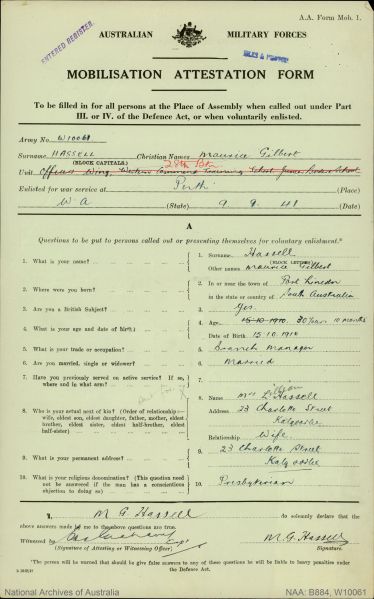 A.A. Form Mob. 1.
ENTERED REGISTER.
AUSTRALIAN MILITARY FORCES
MOBILISATION ATTESTATION FORM
To be filled in for all persons at the Place of Assembly when called out under Part
III. or IV. of the Defence Act, or when voluntarily enlisted.
Army No. W10061
Surname HASSELL Christian Names Maurice Gilbert
(BLOCK CAPITALS) 28th Btn
Unit Officers Wing, Western Command Training School Junior Leaders School
Enlisted for war service at Perth (Place)
W A (State) 9. 9. 41 (Date)
A
Questions to be put to persons called out or presenting themselves for voluntary enlistment.*
1. What is your name? 1. Surname Hassell
(BLOCK LETTERS)
Other names Maurice Gilbert
2. Where were you born? 2. In or near the town of Port Lincoln
in the state or country of South Australia
3. Are you a British Subject? 3. Yes
4. What is your age and date of birth? 4. Age 15.10.1910. 30 years 10 months
Date of Birth 15.10.1910
5. What is your trade or occupation? 5. Branch Manager
6. Are you married, single or widower? 6. Married
7. Have you previously served on active service? If so, where and in what arm? 7.
8. Who is your actual next of kin? (Order of relationship— wife, eldest son, eldest daughter, father, mother, eldest brother, eldest sister, eldest half-brother, eldest half-sister) 8. Name Mrs L. Hassell
Address 23 Charlotte Street
Kalgoorlie
Relationship Wife
9. What is your permanent address? 9. 23 Charlotte Street
Kalgoorlie
10. What is your religious denomination? (This question need not be answered if the man has a conscientious objection to doing so) 10. Presbyterian
I, M. G. Hassell do solemnly declare that the
above answers made by me to the above questions are true.
Witnessed by Capt M. G. Hassell
(Signature of Attesting or Witnessing Officer) Signature.
*The person will be warned that should he give false answers to any of these questions he will be liable to heavy penalties under
the Defence Act.
National Archives of Australia NAA: B884, W10061